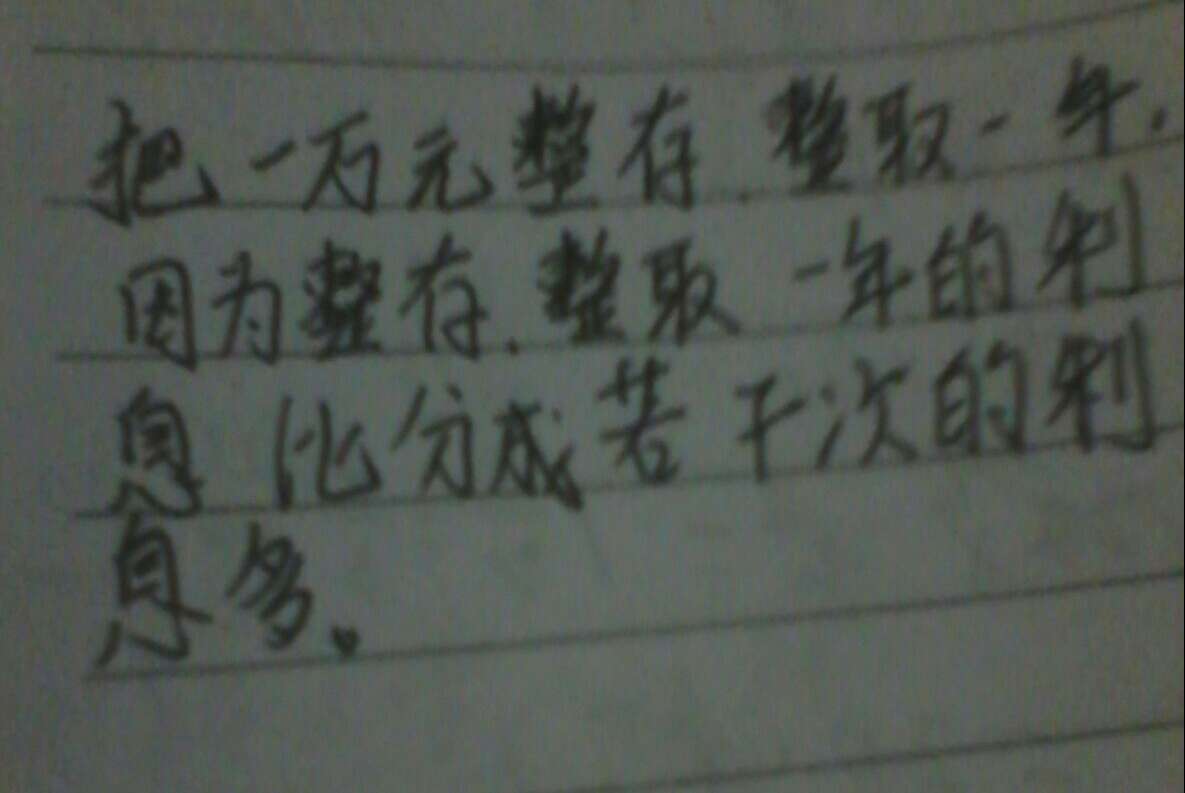 把一万元整存.整取一年.
因为整存.整取一年的利
息比分成若干次的利
息多。